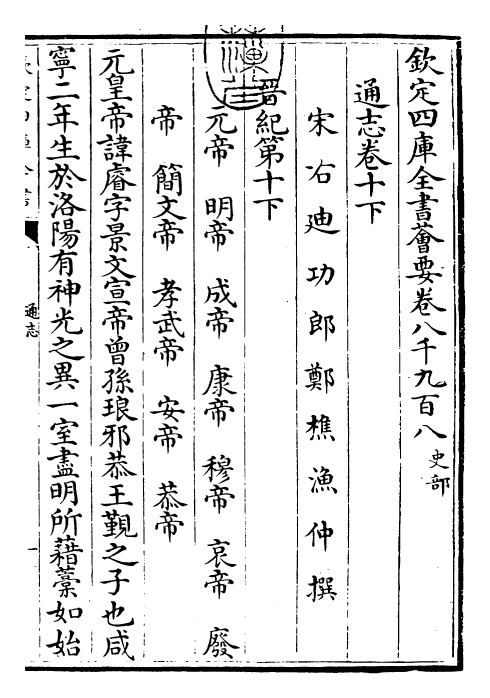 欽定四庫全書薈要卷八千九百八 史部
通志卷十下
宋右迪功郎鄭樵漁仲撰
晉紀第十下
元帝 明帝 成帝 康帝 穆帝 哀帝 廢
帝 簡文帝 孝武帝 安帝 恭帝
元皇帝諱睿字景文宣帝曾孫琅邪恭王覲之子也咸
寧二年生於洛陽有神光之異一室盡明所藉藁如始
通志
一